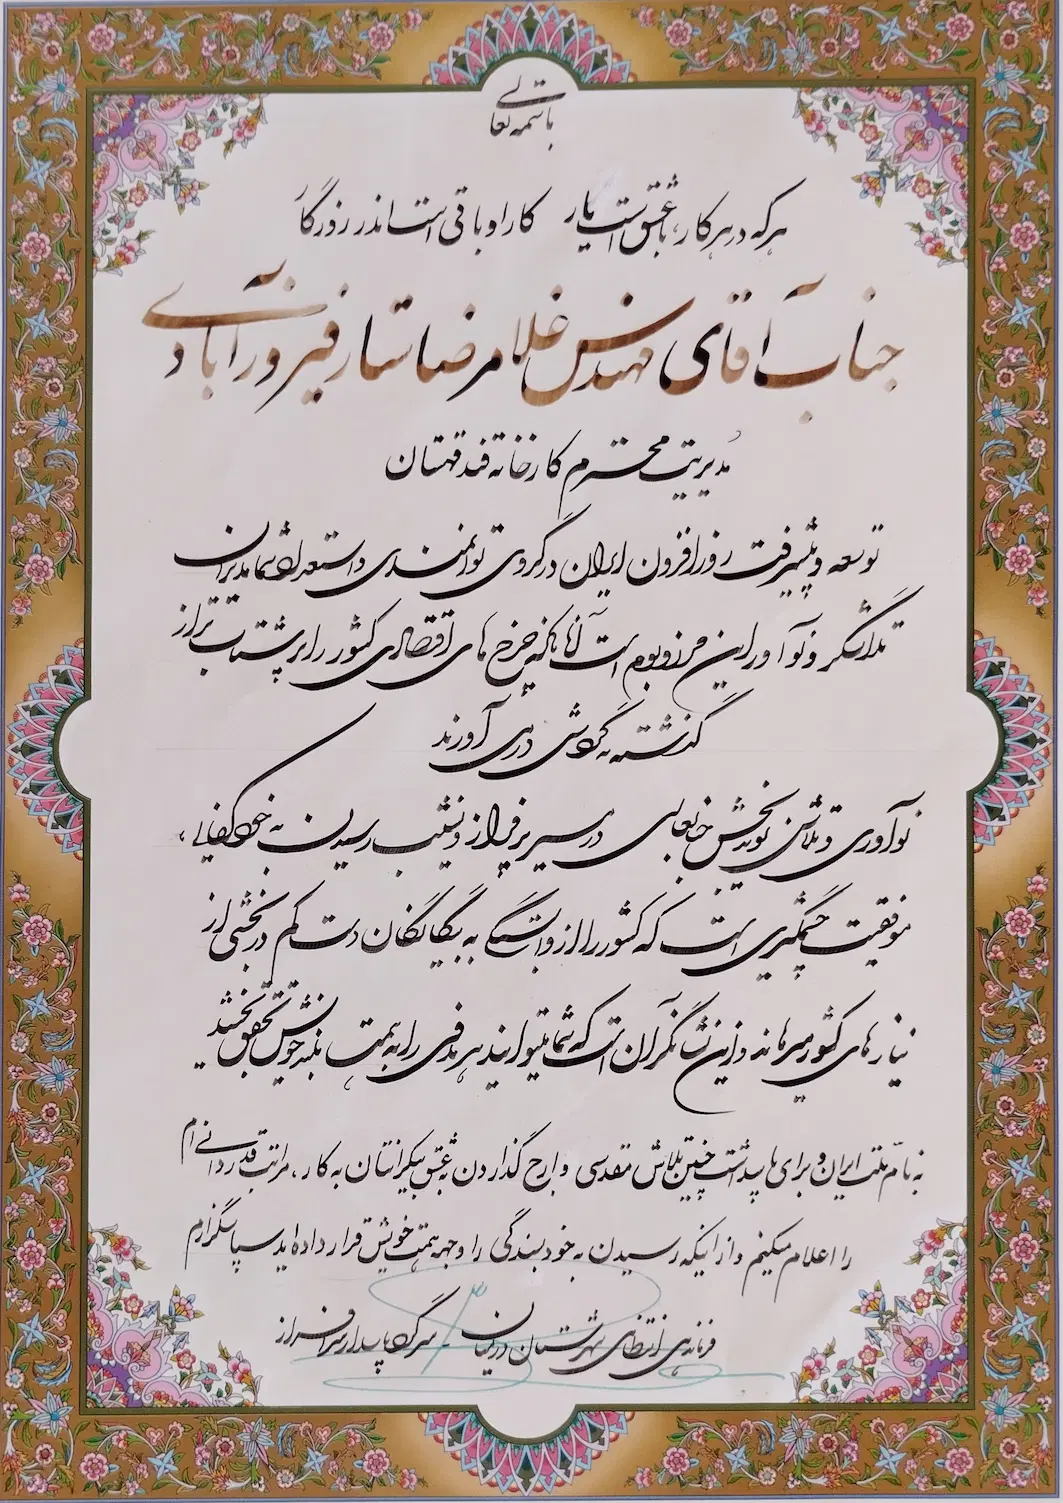 باسمه تعالی
هر که در هر کار، با عشق است یار کار او باقی است اندر روزگار
جناب آقای مهندس غلامرضا ستار فیروزآبادی
مدیریت محترم کارخانه قند قهستان
توسعه و پیشرفت روزافزون ایران در گروی توانمندی و استعداد شما مدیران
تلاشگر و نوآور این مرز و بوم است آنها که چرخ های اقتصادی کشور را پرشتاب تر از
گذشته به گردش در می آورند
نوآوری و تلاش نویدبخش جنابعالی در مسیر پر فراز و نشیب رسیدن به خودکفایی،
موفقیت چشمگیری است که کشور را از وابستگی به بیگانگان دست کم در بخشی از
نیازهای کشور میرهاند و این نشانگر آن است که شما میتوانید هر هدفی را به همت بلند خویش تحقق بخشید
به نام ملت ایران و برای پاسداشت چنین تلاش مقدسی و ارج گذاردن به عشق بیکرانتان به کار، مراتب قدردانی ام
را اعلام میکنم و از اینکه رسیدن به خودبسندگی را وجهه همت خویش قرار داده اید سپاسگزارم
فرماندهی انتظامی شهرستان درمیان - سرگرد پاسدار سرافراز